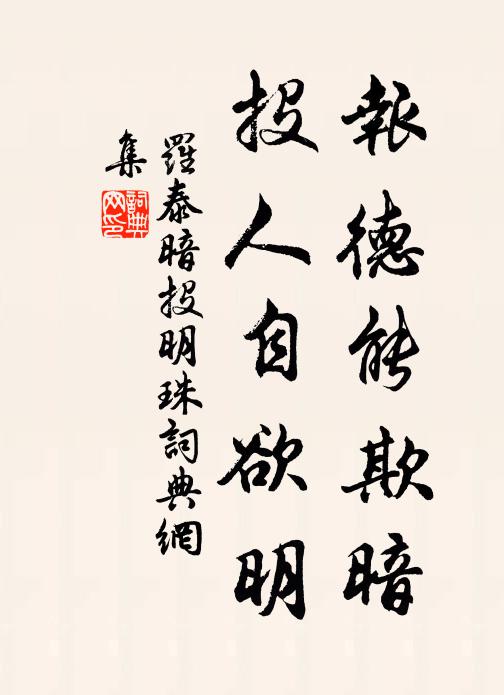 報德能欺暗
投人自欲明
羅泰暗投明珠詞典網
集
詞典
网印